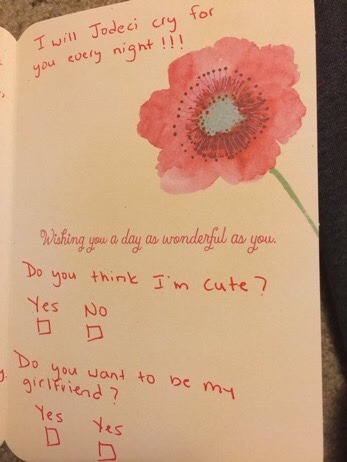 I will Jodeci cry for
you every night!!!
Wishing you a day as wonderful as you.
Do you think I'm cute?
Yes No
Do you want to be my
girlfriend?
Yes Yes